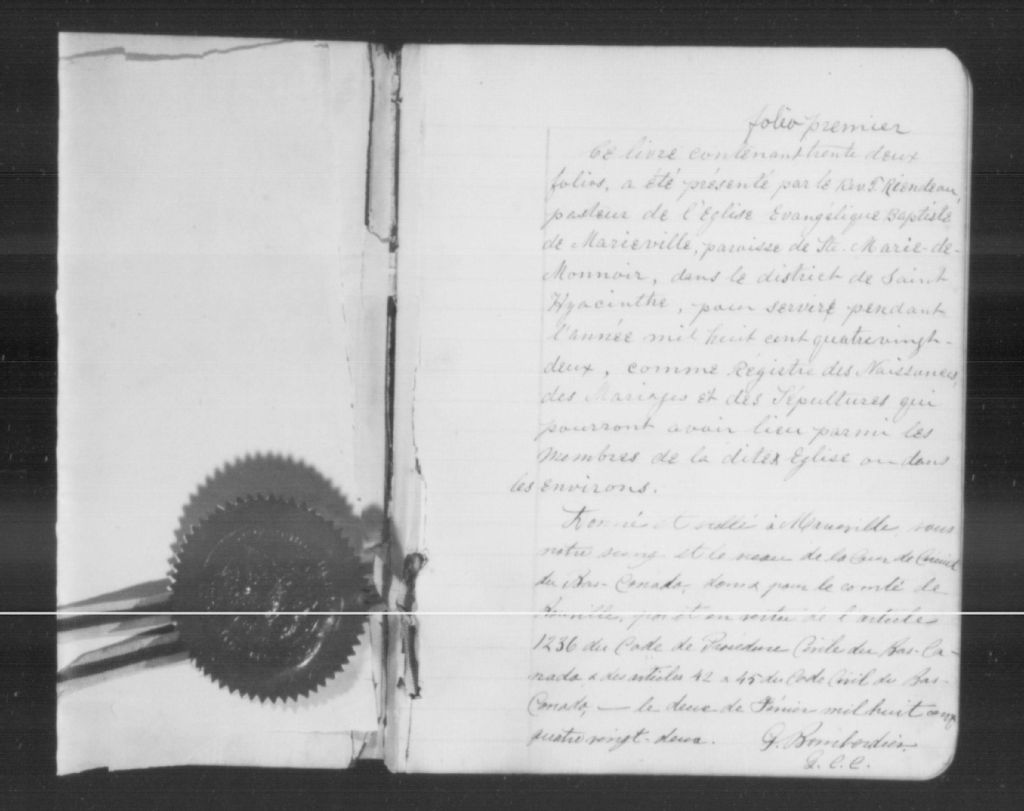 folio premier
Ce livre contenant trente deux
folios, a été présenté par le Rev. T. Riendeau,
pasteur de l'Eglise Evangélique Baptiste
de Marieville, paroisse de Ste-Marie-de-
Monnoir, dans le district de Saint
Hyacinthe, pour servire pendant
l'année mil huit cent quatre vingt-
deux, comme Régistre des Naissances,
des Mariages et des Sépultures qui
pourront avoir lieu parmi les
Membres de la dite Eglise ou dans
les environs.
à Marieville sous
notre seing et le sceau de la Cour de Circuit
du Bas-Canada, dans pour le comté de
Rouville, et en vertu de l'article
1236 du Code de Procédure Civile du Bas-Ca-
nada & des articles 42 à 45 du Code Civil du Bas-
Canada, — le deux de Février mil huit cent
quatre vingt-deux. G. Bombardier
G. C. C.